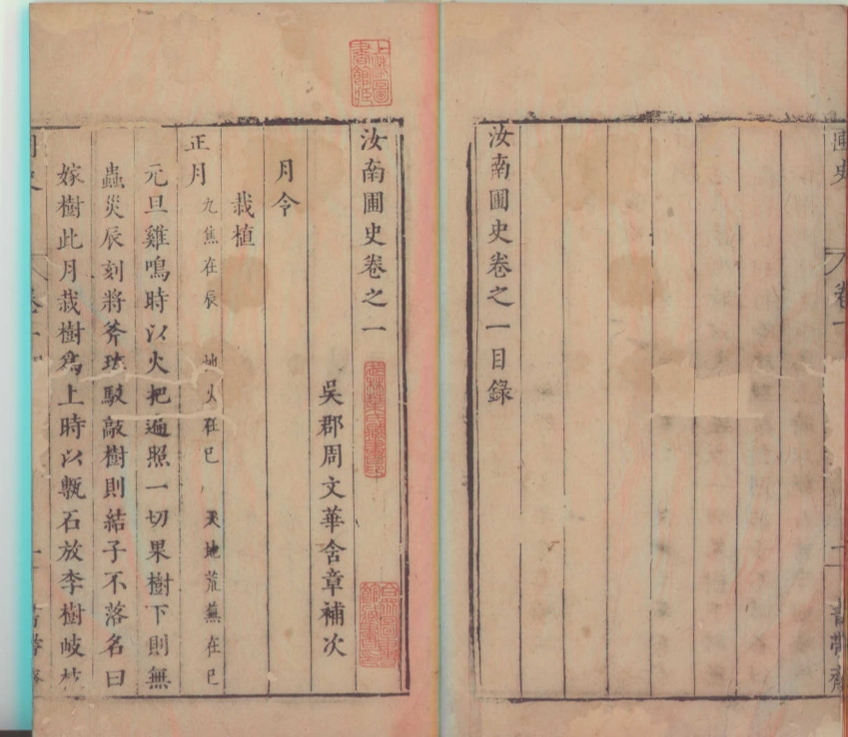 汝南圃史卷之一目錄
汝南圃史卷之一
吳郡周文華含章補次
月令
栽植
正月 九焦在辰 地火在巳 天地荒蕪在巳
元旦雞鳴時以火把遍照一切果樹下則無
蟲災辰刻將斧班駁敲樹則結子不落名曰
嫁樹此月栽樹為上時以甎石放李樹岐枝